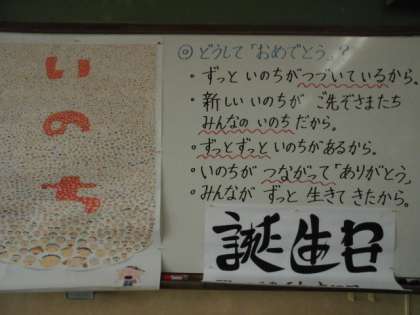 いのち
◎ どうして「おめでとう。」?
・ずっと いのちが つづいているから。
・新しい いのちが ご先ぞさまたち
みんなの いのち だから。
・ずっとずっと いのちがあるから。
・いのちが つながって「ありがとう。」
・みんなが ずっと 生きてきたから。